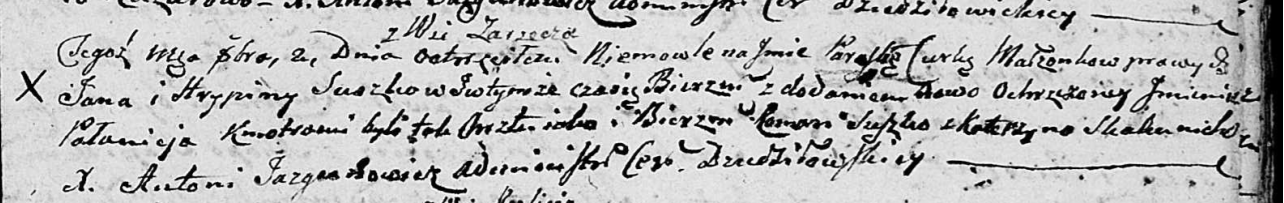 X. Antoni Jazgunowicz administr Cer. Dziedziłowickiey
z Wsi Zarzecza
Tegoż Mca 8bra, 2, Dnia ochrzciłem Niemowle na Jmie Paraskę Curkę Małżonkow prawych
Jana i Hrypiny Suszkow w tymże czasie Bierzm z dodaniem Nowo Ochrzczoney Jmienia
Połanieja Kmotrami byli tak Chrztu iako i Bierzm Roman Suszko z Katerzyno Skakunichą
X. Antoni Jazgunowicz administr Cer. Dziedziłowickiey